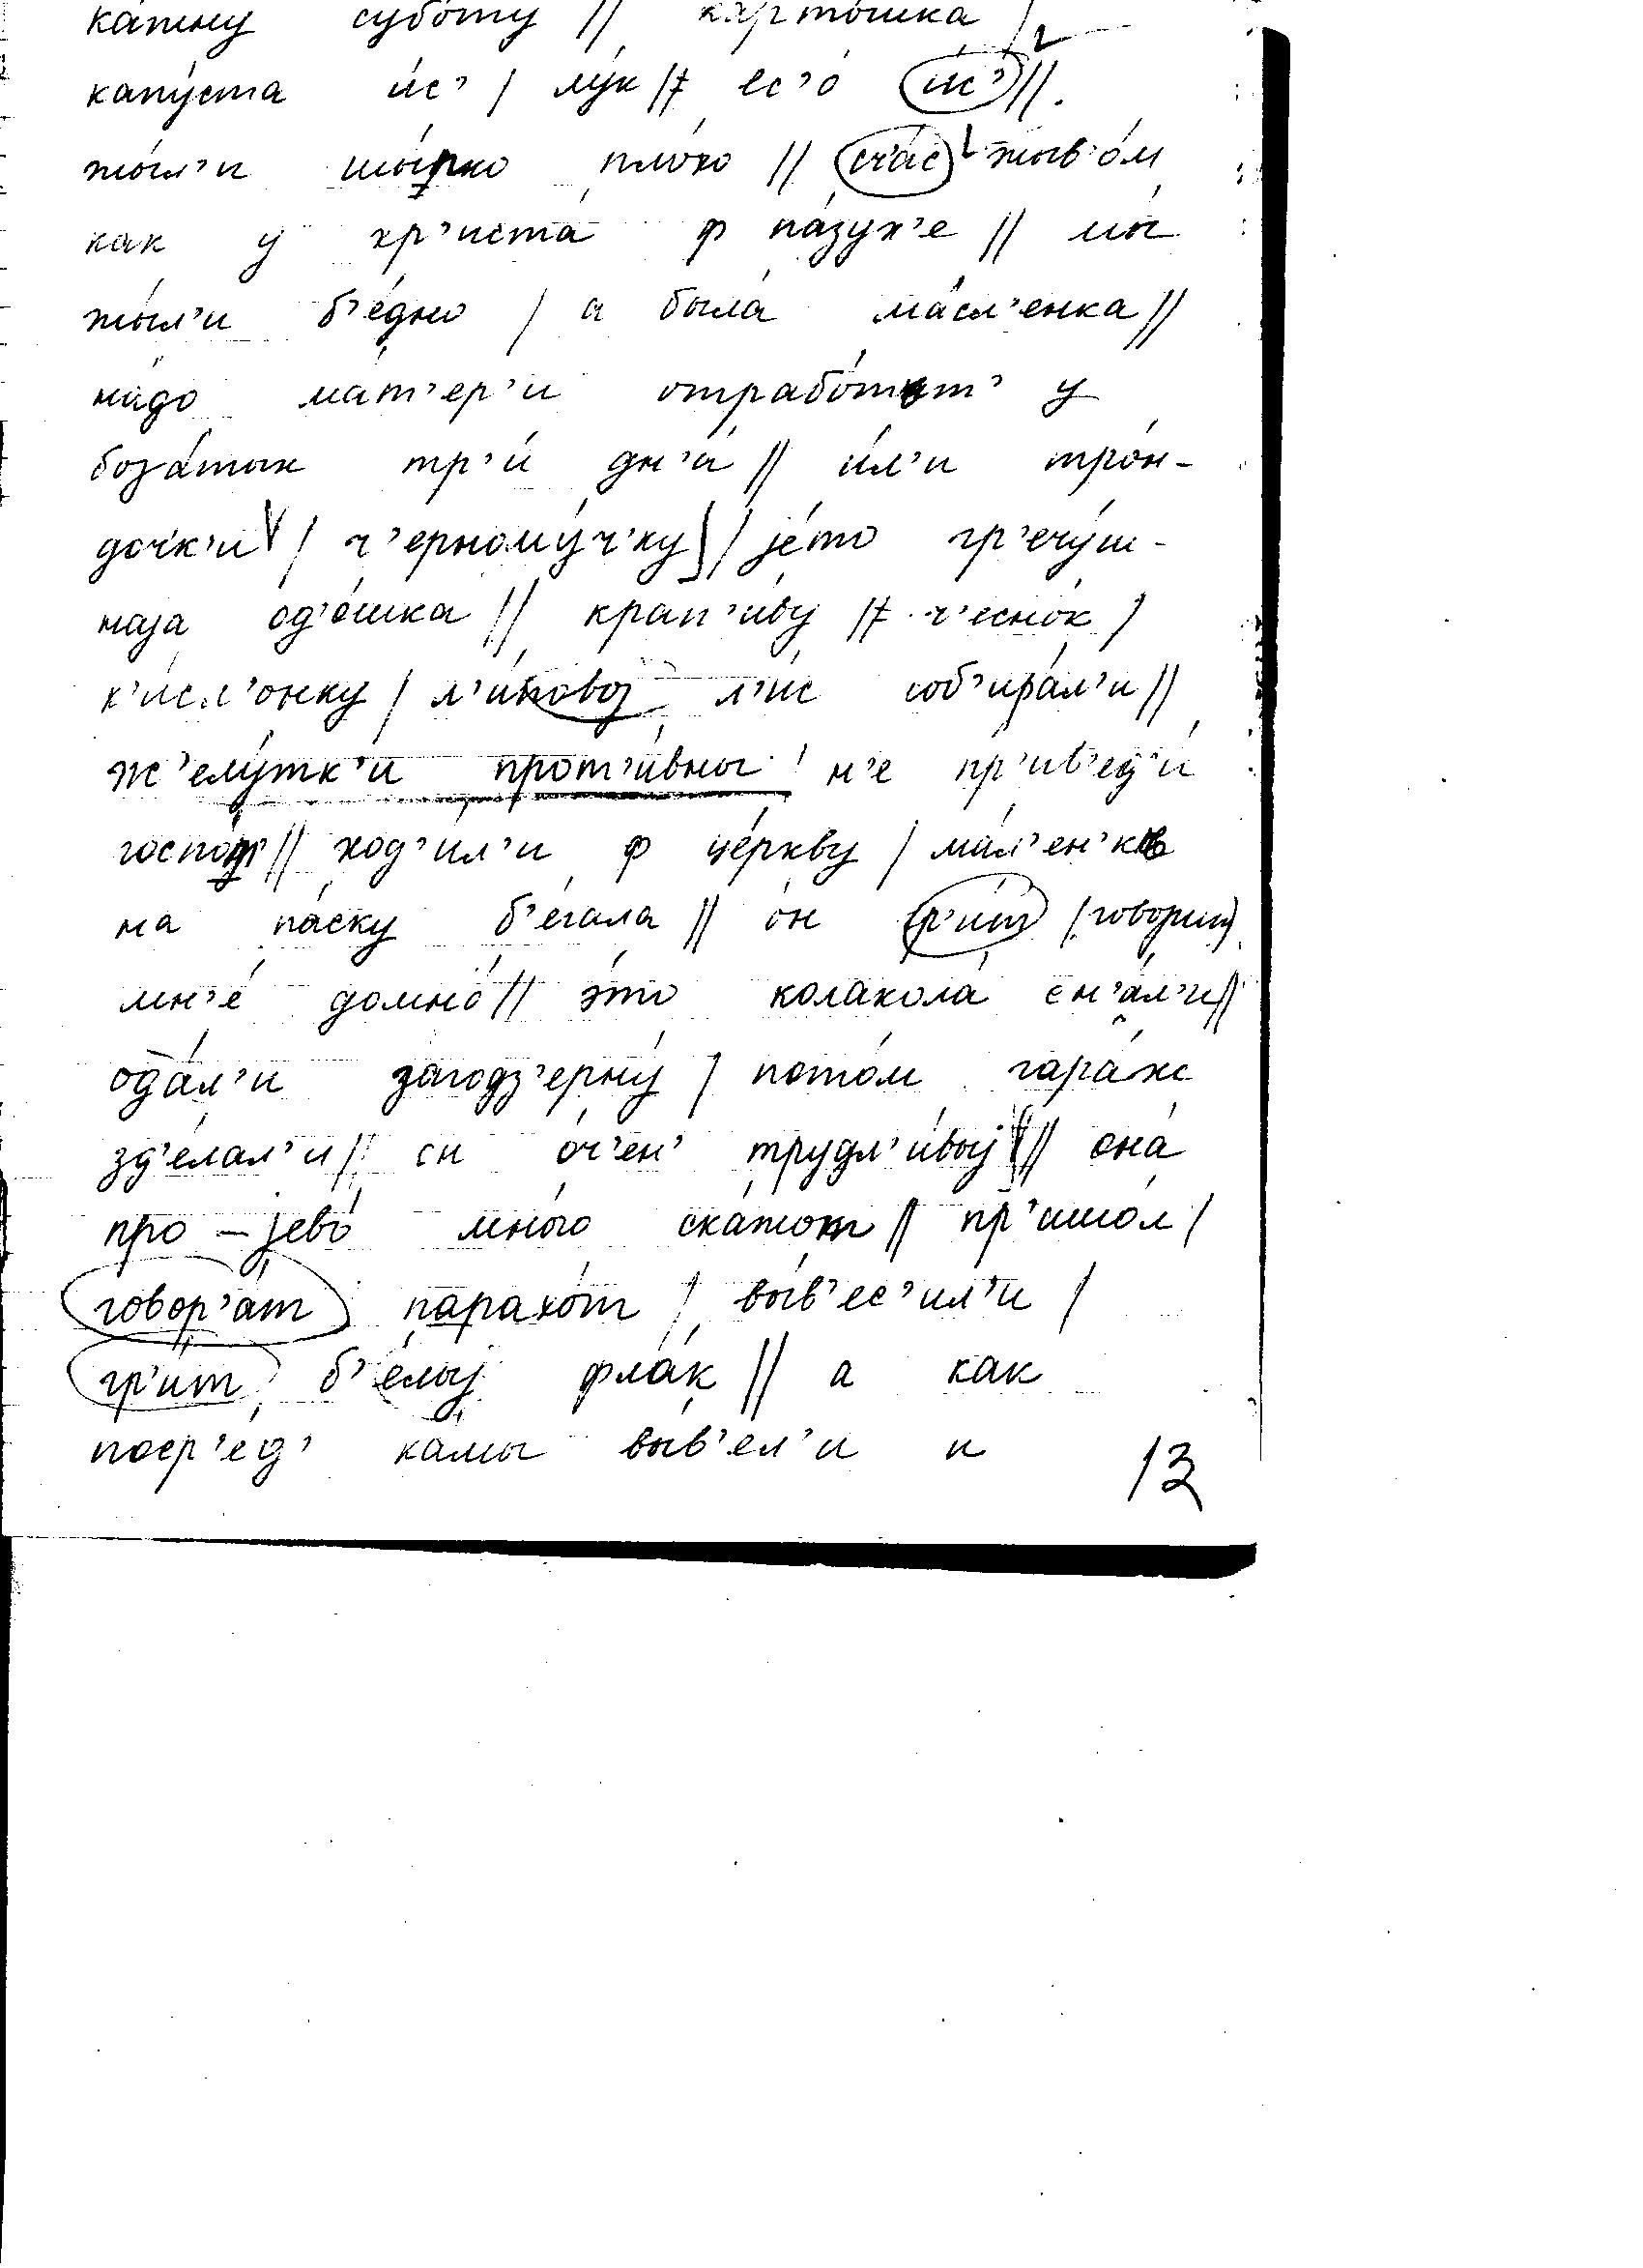 ка́жну субо́ту // карто́шка /
капу́ста и́с’ / лу́к // ес’о́ и́с’ //.
жы́л’и шы́пко пло́хо // сча́с жыв’о́м
как у хр’иста́ ф па́зух’е // мы́
жы́л’и б’е́дно / а была́ ма́сл’енка //
на́до ма́т’ер’и отрабо́тат’ у
бога́тых тр’и́ дн’а́ // и́л’и тро́н-
дочк’и / ч’ерному́ч’ку / jе́то гр’ечу́ш-
наjа од’о́шка // крап’и́ву // ч’есно́к /
к’и́сл’онку / л’и́повоj л’и́с соб’ира́л’и //
ж’елу́тк’и прот’и́вны ! н’е пр’ив’ед’и́
го́спот’ // ход’и́л’и ф це́ркву / ма́л’ен’ка
на па́ску б’е́гала // о́н гр’и́т (говорит)
мн’е́ домно́ // э́то колакола́ сн’а́л’и //
ода́л’и загодз’ерну́ / пото́м гара́ж
зд’е́лал’и // он о́ч’ен’ трудл’и́выj // она́
про – jево́ мно́го ска́жот // пр’ишо́л /
говор’а́т парахо́т / вы́в’ес’ил’и /
гр’и́т б’е́лыj фла́к // а как
поср’е́д’ ка́мы вы́в’ел’и и
13